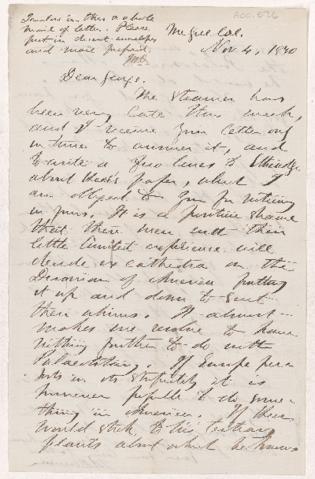 Inclose in this a whole
mail of letters. Please
put in decent envelopes
and mail prepaid.
ACC. 526
McGill Col.
Nov 4, 1890
Dear George.
The steamer has
been very late this week,
and I receive your letter only
in time to answer it, and
to write a few lines to
about paper, which I
am obliged to you for noticing
in yours. It is a positive shame
that these men with their
little limited experience will
decide ex cathedra on the
Devonian of America putting
it up and down to suit
their whims. It almost
makes me resolve to have
nothing further to do with
Palaeobotany. If Europe per-
sists in its stupidity it is
however possible to do some-
thing in America. If
would stick to his tertiary
plants about which he knows